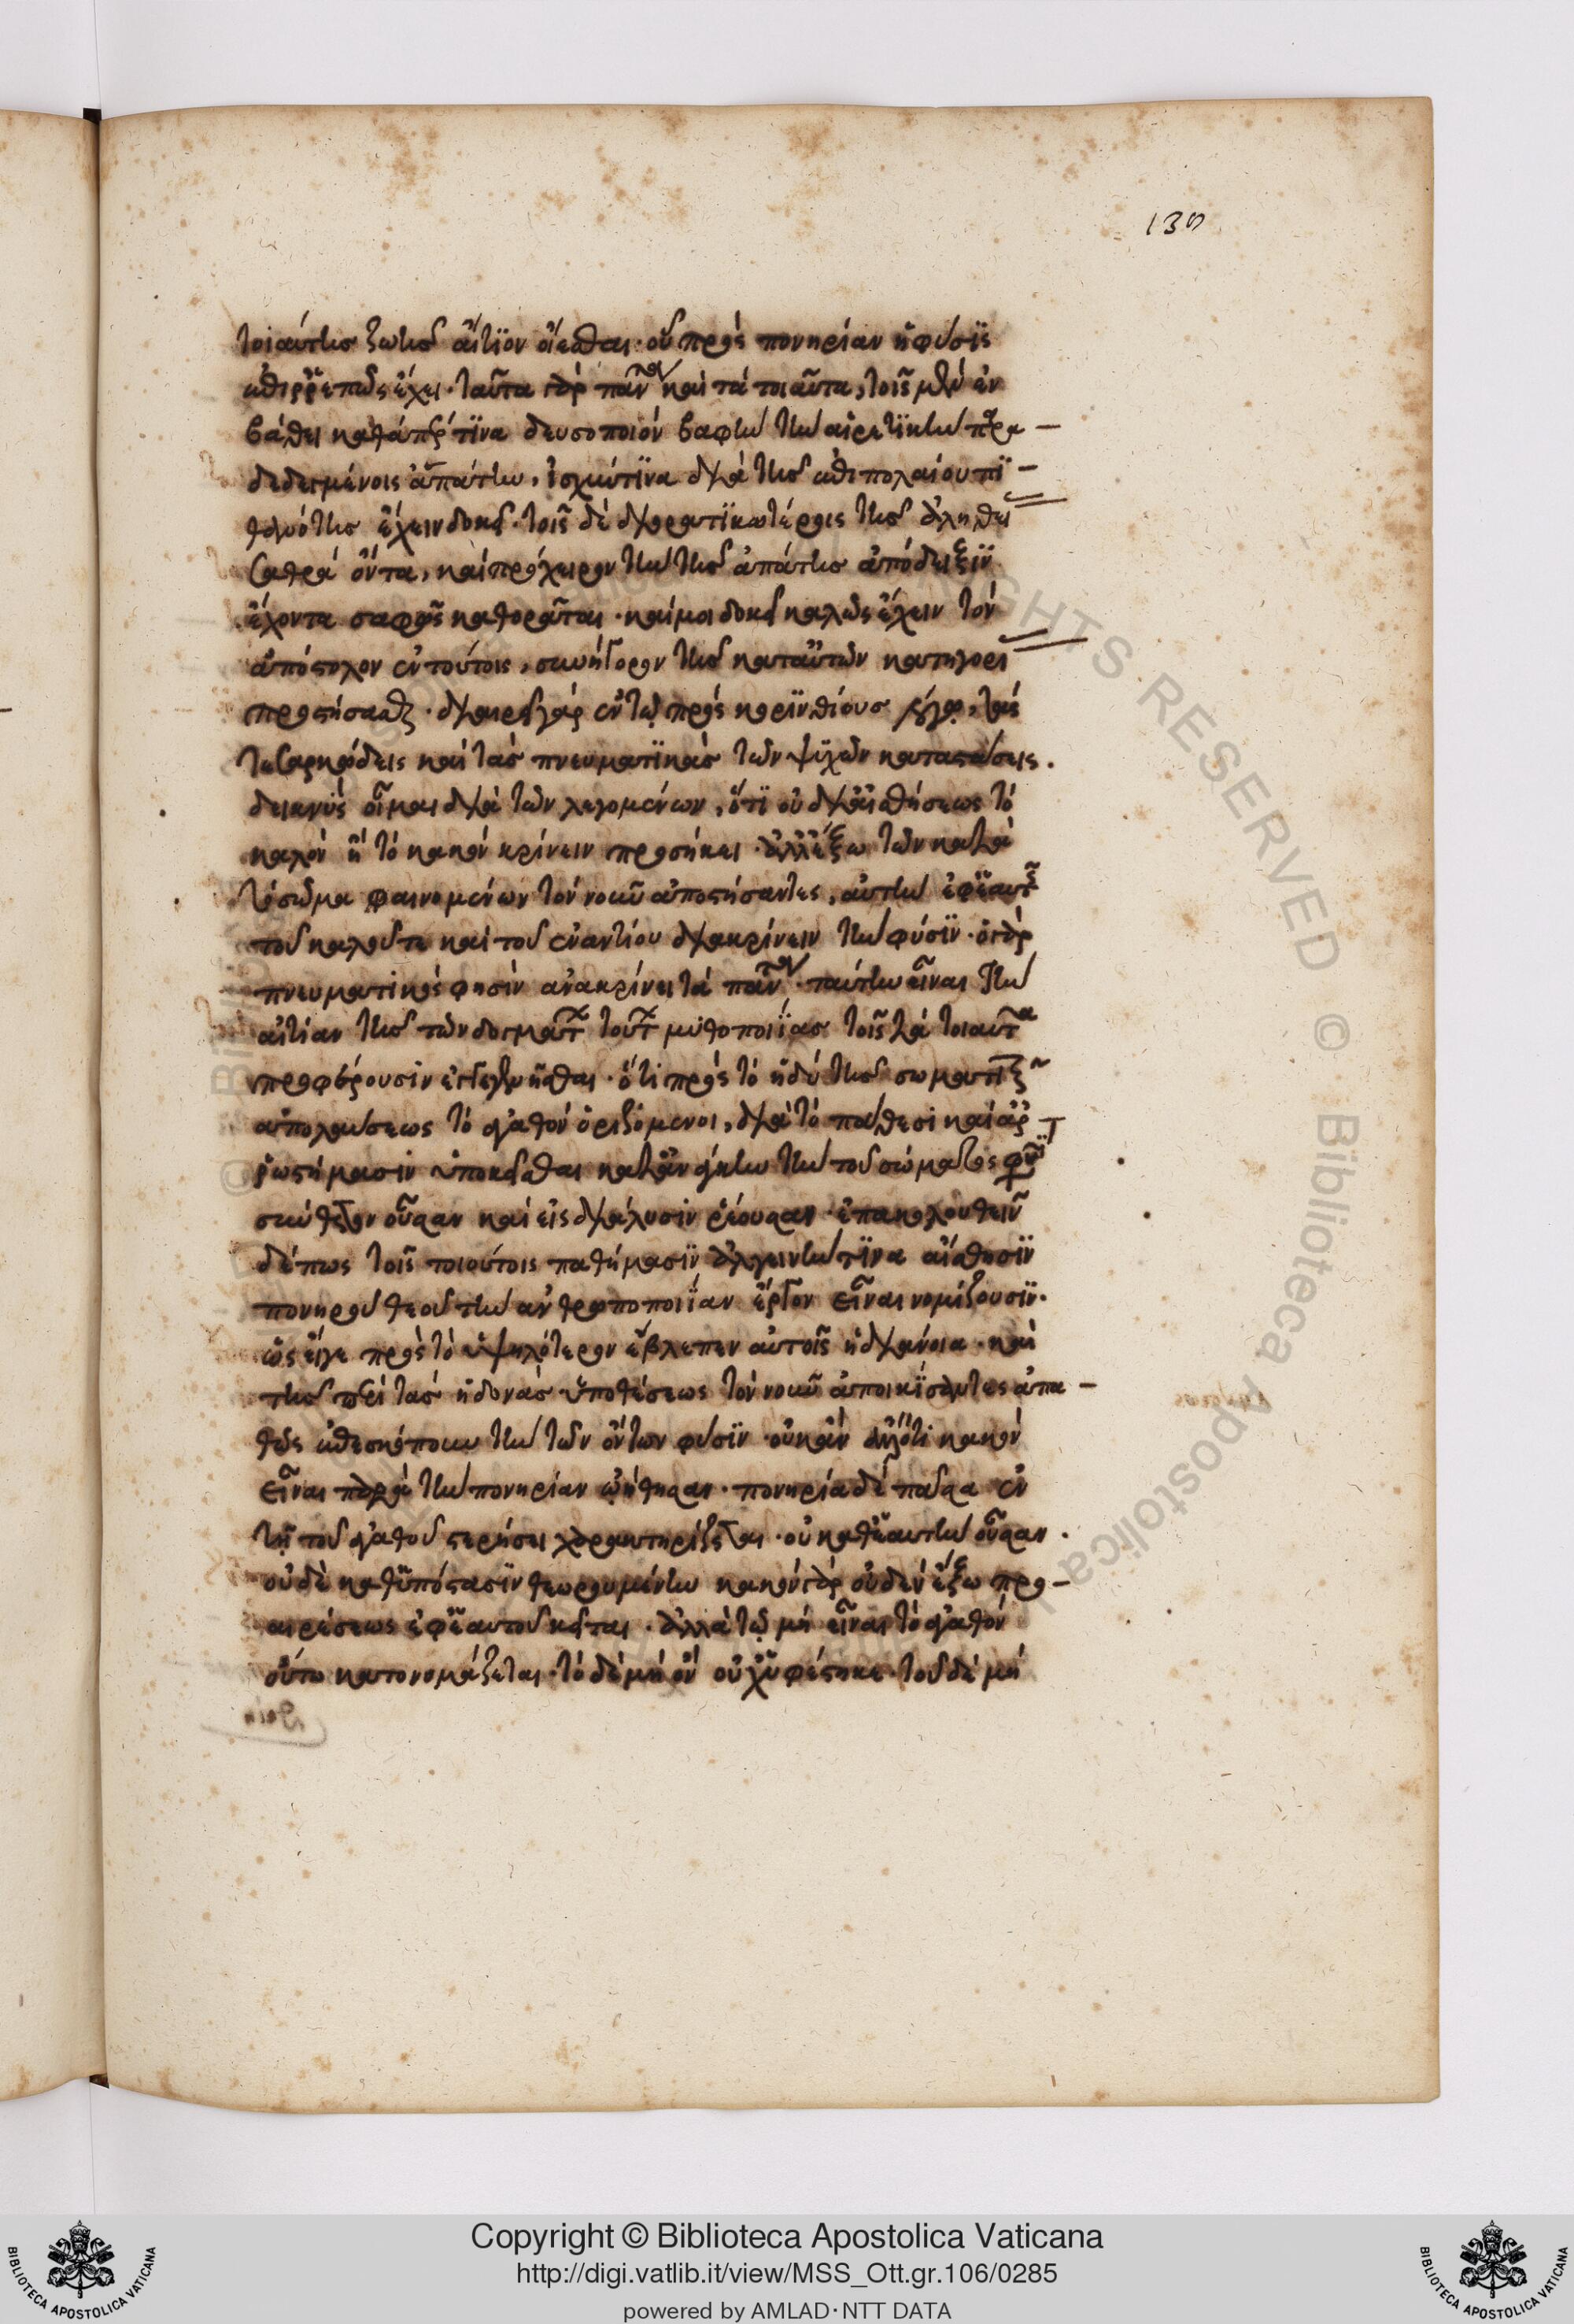 130
τοιαύτης ζωῆς αἴτιον οἴεσθαι· οὗ πρὸς πονηρίαν ἡ φύσις
ἐπιρρεπῶς ἔχει· ταῦτα γὰρ πάντα καὶ τὰ τοιαῦτα, τοῖς μὲν ἐν
βάθει καθάπερ τινα δευσοποιὸν βαφὴν τὴν αἱρετικὴν παρα-
δεδεγμένοις ἀπάτην, ἰσχύν τινα διὰ τῆς ἐπιπολαίου πι-
θανότητος ἔχειν δοκεῖ· τοῖς δὲ διορατικωτέροις τῆς ἀληθεί
σαθρὰ ὄντα, καὶ πρόχειρον τὴν τῆς ἀπάτης ἀπόδειξιν
ἔχοντα σαφῶς καθορᾶται· καί μοι δοκεῖ καλῶς ἔχειν τὸν
ἀπόστολον ἐν τούτοις, συνήγορον τῆς κατ' αὐτῶν κατηγορί
προστήσασθαι· διαιρεῖ γὰρ ἐν τῷ πρὸς κορινθίους λόγῳ, τάς
τε σαρκώδεις καὶ τὰς πνευματικὰς τῶν ψυχῶν καταστάσεις·
δεικνὺς οἶμαι διὰ τῶν λεγομένων, ὅτι οὐ δι' αἰσθήσεως τὸ
καλὸν ἢ τὸ κακὸν κρίνειν προσήκει· ἀλλ' ἔξω τῶν κατὰ
τὸ σῶμα φαινομένων τὸν νοῦν ἀποστήσαντες, αὐτὴν ἐφ' ἑαυτῆς
τοῦ καλοῦ τε καὶ τοῦ ἐναντίου διακρίνειν τὴν φύσιν· ὁ γὰρ
πνευματικός φησιν ἀνακρίνει τὰ πάντα· ταύτην εἶναι τὴν
αἰτίαν τῆς τῶν δογμάτων τούτων μυθοποιΐας τοῖς τὰ τοιαῦτα
προφέρουσιν ἐγγεγενῆσθαι· ὅτι πρὸς τὸ ἡδὺ τῆς σωματικῆς
ἀπολαύσεως τὸ ἀγαθὸν ὁριζόμενοι, διὰ τὸ πάθεσι καὶ ἀρ
ρωστήμασιν ὑποκεῖσθαι κατ' ἀνάγκην τὴν τοῦ σώματος φύσιν
σύνθετον οὖσαν καὶ εἰς διάλυσιν ῥέουσαν· ἐπακολουθεῖν
δέ πως τοῖς τοιούτοις παθήμασιν ἀλγεινήν τινα αἴσθησιν
πονηροῦ θεοῦ τὴν ἀνθρωποποιΐαν ἔργον εἶναι νομίζουσιν·
ὡς εἴγε πρὸς τὸ ὑψηλότερον ἔβλεπεν αὐτοῖς ἡ διάνοια· καὶ
τῆς περὶ τὰς ἡδονὰς ὑποθέσεως τὸν νοῦν ἀποικίσαντες ἀπα-
θῶς ἐπεσκόπουν τὴν τῶν ὄντων φύσιν· οὐκ ἂν ἄλλό τι κακὸν
εἶναι παρὰ τὴν πονηρίαν ᾠήθησαν· πονηρία δὲ πᾶσα ἐν
τῇ τοῦ ἀγαθοῦ στερήσει χαρακτηρίζεται· οὐ καθ' ἑαυτὴν οὖσαν·
οὐδὲ καθ' ὑπόστασιν θεωρουμένην κακὸν γὰρ οὐδὲν ἔξω προ-
αιρέσεως ἐφ' ἑαυτοῦ κεῖται· ἀλλὰ τῷ μὴ εἶναι τὸ ἀγαθὸν
οὕτω κατονομάζεται· τὸ δὲ μὴ ὂν οὐχ' ὑφέστηκε· τοῦ δὲ μὴ
Copyright © Biblioteca Apostolica Vaticana
http://digi.vatlib.it/view/MSS_Ott.gr.106/0285
powered by AMLAD·NTT DATA